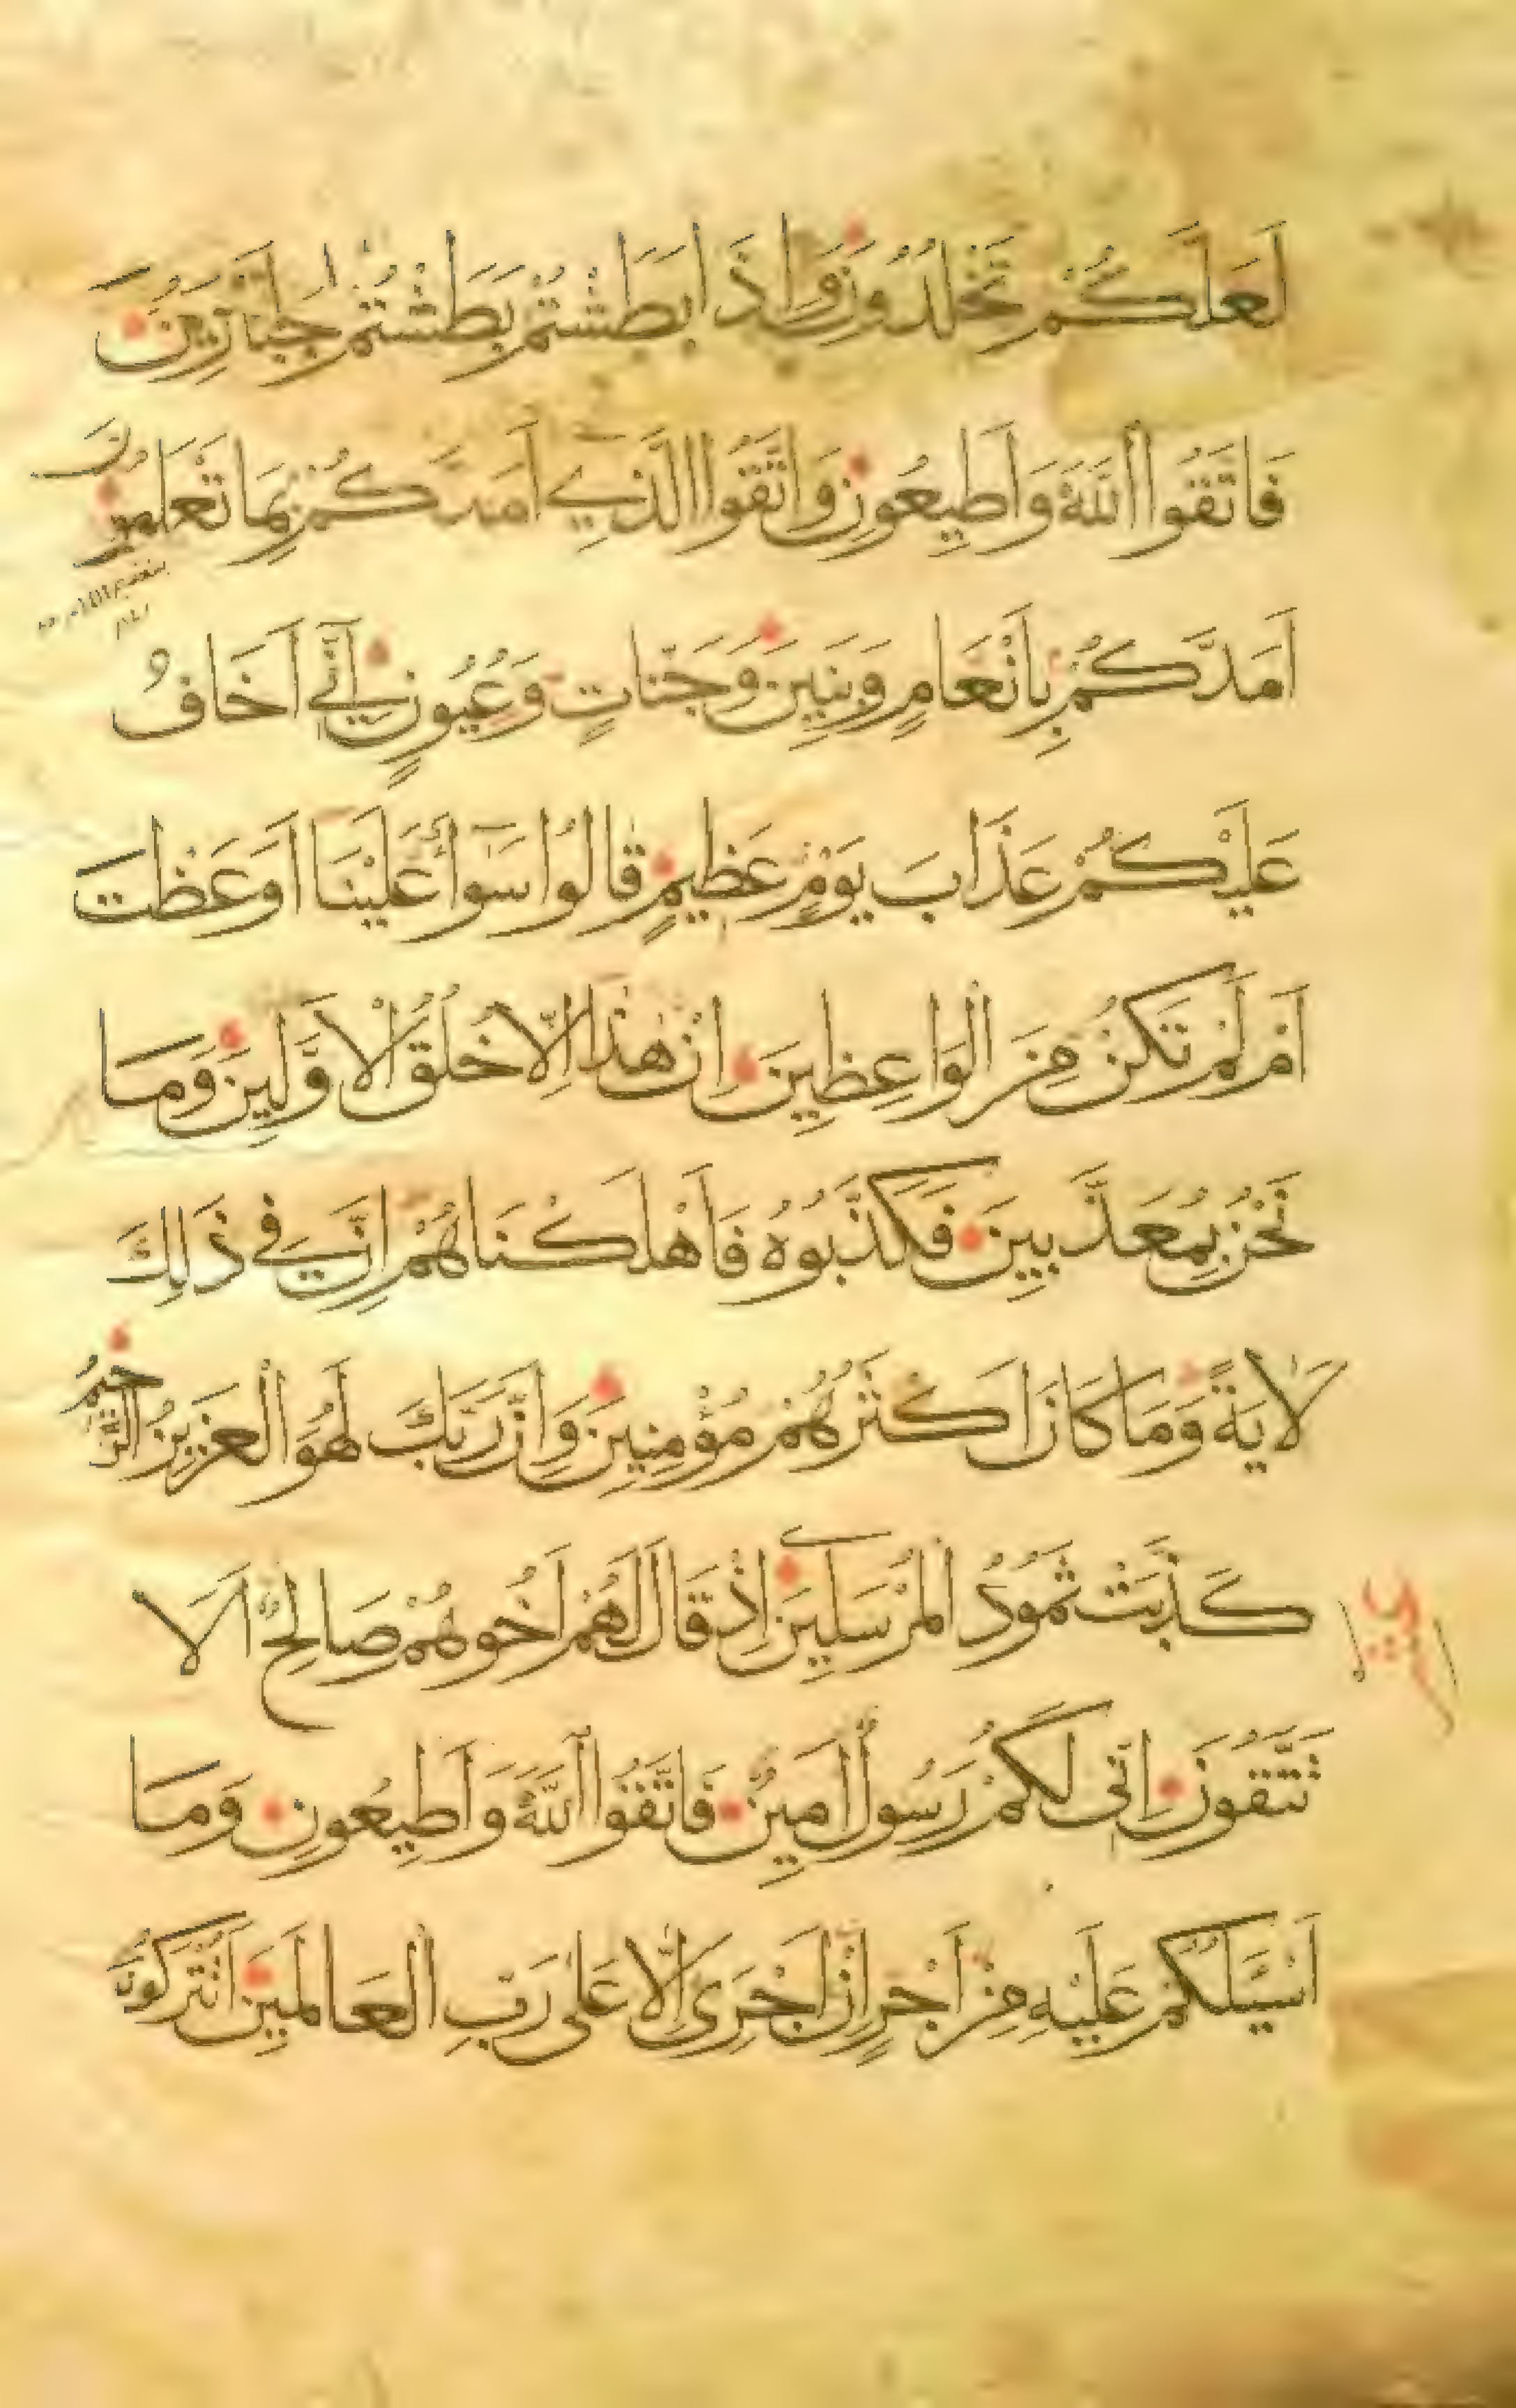 لَعَلَّكُمْ تَخْلُدُونَ وَإِذَا بَطَشْتُمْ بَطَشْتُمْ جَبَّارِينَ
فَاتَّقُوا اللَّهَ وَأَطِيعُونِ وَاتَّقُوا الَّذِي أَمَدَّكُمْ بِمَا تَعْلَمُونَ
أَمَدَّكُمْ بِأَنْعَامٍ وَبَنِينَ وَجَنَّاتٍ وَعُيُونٍ إِنِّي أَخَافُ
عَلَيْكُمْ عَذَابَ يَوْمٍ عَظِيمٍ قَالُوا سَوَآءٌ عَلَيْنَا أَوَعَظْتَ
أَمْ لَمْ تَكُنْ مِنَ الْوَاعِظِينَ إِنْ هٰذَا إِلَّا خُلُقُ الْأَوَّلِينَ وَمَا
نَحْنُ بِمُعَذَّبِينَ فَكَذَّبُوهُ فَأَهْلَكْنَاهُمْ إِنَّ فِي ذَلِكَ
لَآيَةً وَمَا كَانَ أَكْثَرُهُمْ مُؤْمِنِينَ وَإِنَّ رَبَّكَ لَهُوَ الْعَزِيزُ الرَّحِيمُ
كَذَّبَتْ ثَمُودُ الْمُرْسَلِينَ إِذْ قَالَ لَهُمْ أَخُوهُمْ صَالِحٌ أَلَا
تَتَّقُونَ إِنِّي لَكُمْ رَسُولٌ أَمِينٌ فَاتَّقُوا اللَّهَ وَأَطِيعُونِ وَمَا
أَسْئَلُكُمْ عَلَيْهِ مِنْ أَجْرٍ إِنْ أَجْرِيَ إِلَّا عَلَى رَبِّ الْعَالَمِينَ أَتُتْرَكُونَ